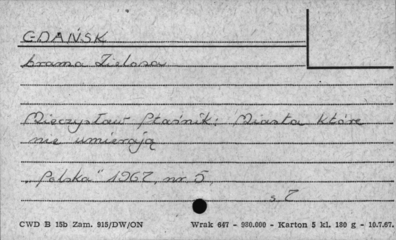 GDAŃSK
brama Zielona
Mieczysław Ptaśnik: Miasta które
nie umierają
"Polska" 1967, nr 5,
s. 7
CWD B 15b Zam. 915/DW/ON Wrak 647 - 900.000 - Karton 5 kl. 180 g - 10.7.67.